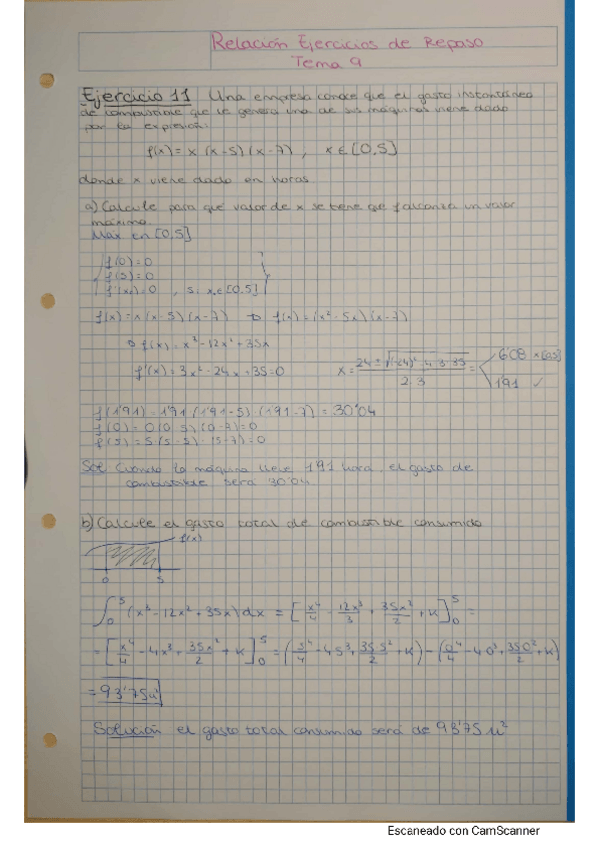 Relación Ejercicios de Repaso
Tema 9
Ejercicio 11 Una empresa conoce que el gasto instantáneo
de combustible que le genera una de sus máquinas viene dado
por la expresión:
f(x) = x (x-5) (x-7) , x ∈ [0,5]
donde x viene dado en horas.
a) Calcule para qué valor de x se tiene que f alcanza un valor
máximo.
Max en [0,5]
f(0)=0
f(5)=0
f'(x)=0 , si x∈[0,5]
f(x) = x(x-5)(x-7) ⇒ f(x) = (x²-5x)(x-7)
⇒ f(x) = x³-12x²+35x
f'(x) = 3x²-24x+35=0 x = 24 ± √(-24)²-4·3·35 / 2·3 = 6'08 x∉[0,5]
1'91 ✓
f(1'91) = 1'91 (1'91-5)·(1'91-7) = 30'04
f(0) = 0(0-5)(0-7)=0
f(5) = 5(5-5)·(5-7)=0
Sol: Cuando la máquina lleve 1'91 hora, el gasto de
combustible será 30'04
b) Calcule el gasto total de combustible consumido
f(x)
0 5
∫₀⁵ (x³-12x²+35x)dx = [x⁴/4 - 12x³/3 + 35x²/2 + K]₀⁵ =
= [x⁴/4 - 4x³ + 35x²/2 + K]₀⁵ = (5⁴/4 - 4·5³ + 35·5²/2 + K) - (0⁴/4 - 4·0³ + 35·0²/2 + K)
= 93'75u²
Solución el gasto total consumido será de 93'75 u²
Escaneado con CamScanner